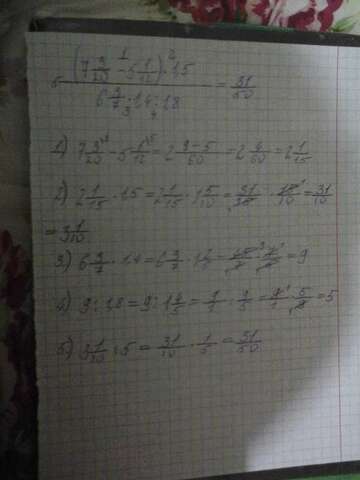 5 (7 3/20 - 5 1/12) · 1,5
6 3/7 · 1,4 : 1,8 = 31/50
1) 7 3/20 - 5 1/12 = 2 9-5/60 = 2 4/60 = 2 1/15
2) 2 1/15 · 1,5 = 2 1/15 · 1 5/10 = 31/15 · 15/10 = 31/10
= 3 1/10
3) 6 3/7 · 1,4 = 6 3/7 · 1 2/5 = 45/7 · 7/5 = 9
4) 9 : 1,8 = 9 : 1 4/5 = 9/1 : 9/5 = 9/1 · 5/9 = 5
5) 3 1/10 : 5 = 31/10 · 1/5 = 31/50